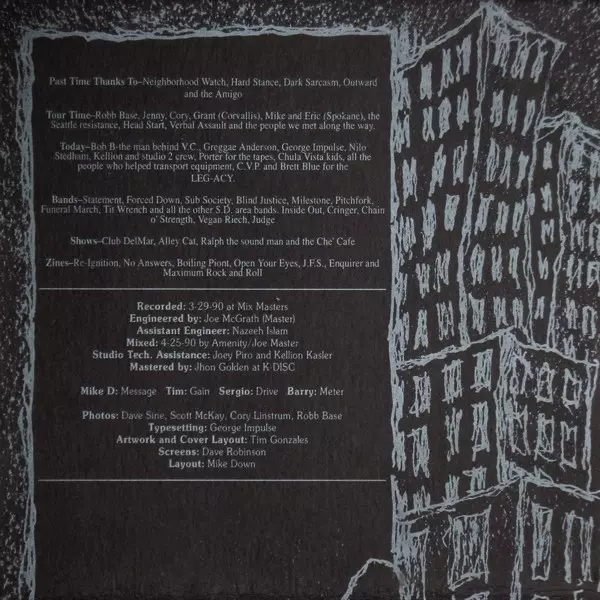 Past Time Thanks To–Neighborhood Watch, Hard Stance, Dark Sarcasm, Outward
and the Amigo
Tour Time–Robb Base, Jenny, Cory, Grant (Corvallis), Mike and Eric (Spokane), the
Seattle resistance, Head Start, Verbal Assault and the people we met along the way.
Today–Bob B-the man behind V.C., Greggae Anderson, George Impulse, Nilo
Stedham, Kellion and studio 2 crew, Porter for the tapes, Chula Vista kids, all the
people who helped transport equipment, C.V.P. and Brett Blue for the
LEG-ACY.
Bands–Statement, Forced Down, Sub Society, Blind Justice, Milestone, Pitchfork,
Funeral March, Tit Wrench and all the other S.D. area bands. Inside Out, Cringer, Chain
o' Strength, Vegan Riech, Judge
Shows–Club DelMar, Alley Cat, Ralph the sound man and the Che' Cafe
Zines–Re-Ignition, No Answers, Boiling Piont, Open Your Eyes, J.F.S., Enquirer and
Maximum Rock and Roll
Recorded: 3-29-90 at Mix Masters
Engineered by: Joe McGrath (Master)
Assistant Engineer: Nazeeh Islam
Mixed: 4-25-90 by Amenity/Joe Master
Studio Tech. Assistance: Joey Piro and Kellion Kasler
Mastered by: Jhon Golden at K-DISC
Mike D: Message Tim: Gain Sergio: Drive Barry: Meter
Photos: Dave Sine, Scott McKay, Cory Linstrum, Robb Base
Typesetting: George Impulse
Artwork and Cover Layout: Tim Gonzales
Screens: Dave Robinson
Layout: Mike Down